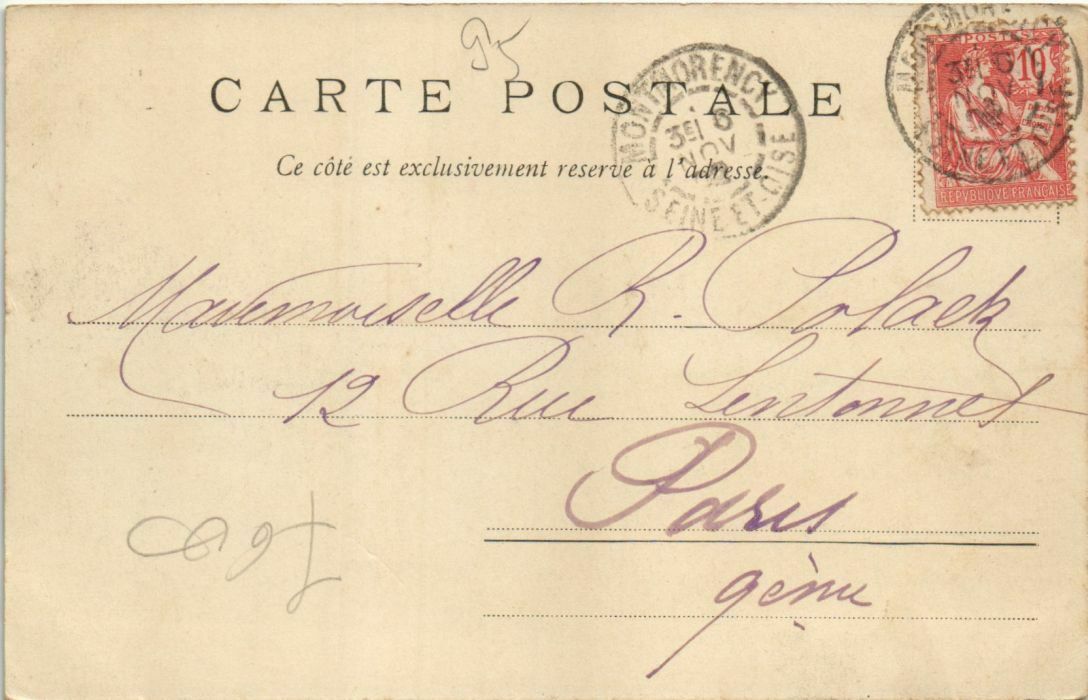 95
CARTE POSTALE
Ce côté est exclusivement reservé à l'adresse.
MONTMORENCY
3E/ 6
NOV
SEINE-ET-OISE
POSTES
10
REPVBLIQVE FRANÇAISE
Mademoiselle R. Polack
12 Rue Lentonnet
Paris
9ème